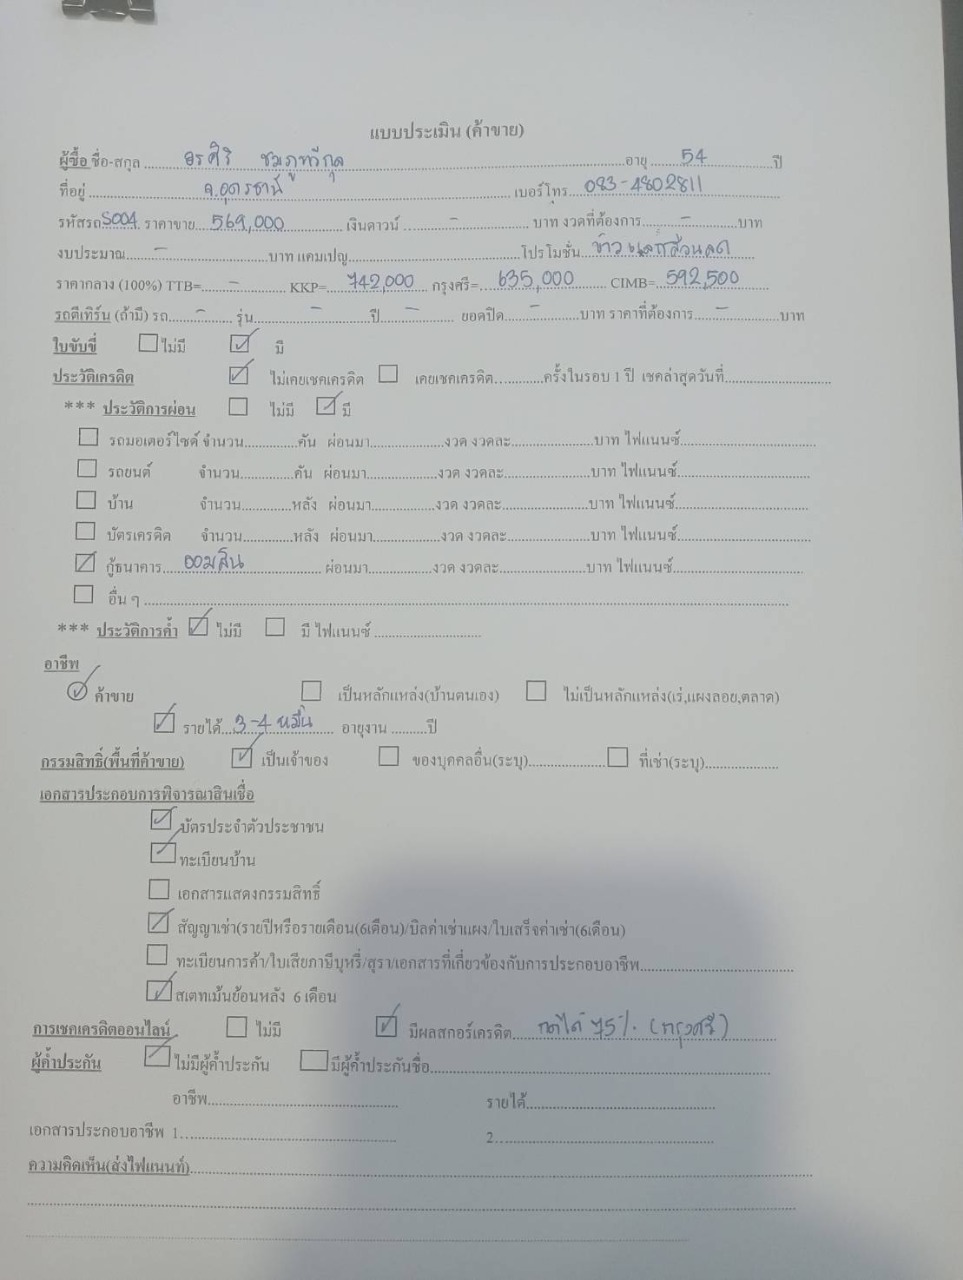 แบบประเมิน (ค้าขาย)
ผู้ซื้อ ชื่อ-สกุล อรศิริ ชมภูทวีกุล อายุ 54 ปี
ที่อยู่ จ.อุดรธานี เบอร์โทร 083-4802811
รหัสรถ S004 ราคาขาย 569,000 เงินดาวน์ - บาท งวดที่ต้องการ - บาท
งบประมาณ - บาท แคมเปญ โปรโมชั่น ข่าว แลกส่วนลด
ราคากลาง (100%) TTB= - KKP= 742,000 กรุงศรี= 635,000 CIMB= 592,500
รถตีเทิร์น (ถ้ามี) รถ - รุ่น - ปี - ยอดปิด - บาท ราคาที่ต้องการ - บาท
ใบขับขี่ ไม่มี มี
ประวัติเครดิต ไม่เคยเชคเครดิต เคยเชคเครดิต ครั้งในรอบ 1 ปี เชคล่าสุดวันที่
*** ประวัติการผ่อน ไม่มี มี
รถมอเตอร์ไซค์ จำนวน คัน ผ่อนมา งวด งวดละ บาท ไฟแนนซ์
รถยนต์ จำนวน คัน ผ่อนมา งวด งวดละ บาท ไฟแนนซ์
บ้าน จำนวน หลัง ผ่อนมา งวด งวดละ บาท ไฟแนนซ์
บัตรเครดิต จำนวน หลัง ผ่อนมา งวด งวดละ บาท ไฟแนนซ์
กู้ธนาคาร ออมสิน ผ่อนมา งวด งวดละ บาท ไฟแนนซ์
อื่น ๆ
*** ประวัติการค้ำ ไม่มี มี ไฟแนนซ์
อาชีพ
ค้าขาย เป็นหลักแหล่ง(บ้านตนเอง) ไม่เป็นหลักแหล่ง(เร่,แผงลอย,ตลาด)
รายได้ 3-4 หมื่น อายุงาน ปี
กรรมสิทธิ์(พื้นที่ค้าขาย) เป็นเจ้าของ ของบุคคลอื่น(ระบุ) ที่เช่า(ระบุ)
เอกสารประกอบการพิจารณาสินเชื่อ
บัตรประจำตัวประชาชน
ทะเบียนบ้าน
เอกสารแสดงกรรมสิทธิ์
สัญญาเช่า(รายปีหรือรายเดือน(6เดือน)/บิลค่าเช่าแผง/ใบเสร็จค่าเช่า(6เดือน)
ทะเบียนการค้า/ใบเสียภาษีบุหรี่/สุรา/เอกสารที่เกี่ยวข้องกับการประกอบอาชีพ
สเตทเม้นย้อนหลัง 6 เดือน
การเชคเครดิตออนไลน์ ไม่มี มีผลสกอร์เครดิต กดได้ 75% (กรุงศรี)
ผู้ค้ำประกัน ไม่มีผู้ค้ำประกัน มีผู้ค้ำประกันชื่อ
อาชีพ รายได้
เอกสารประกอบอาชีพ 1. 2.
ความคิดเห็น(ส่งไฟแนนท์)